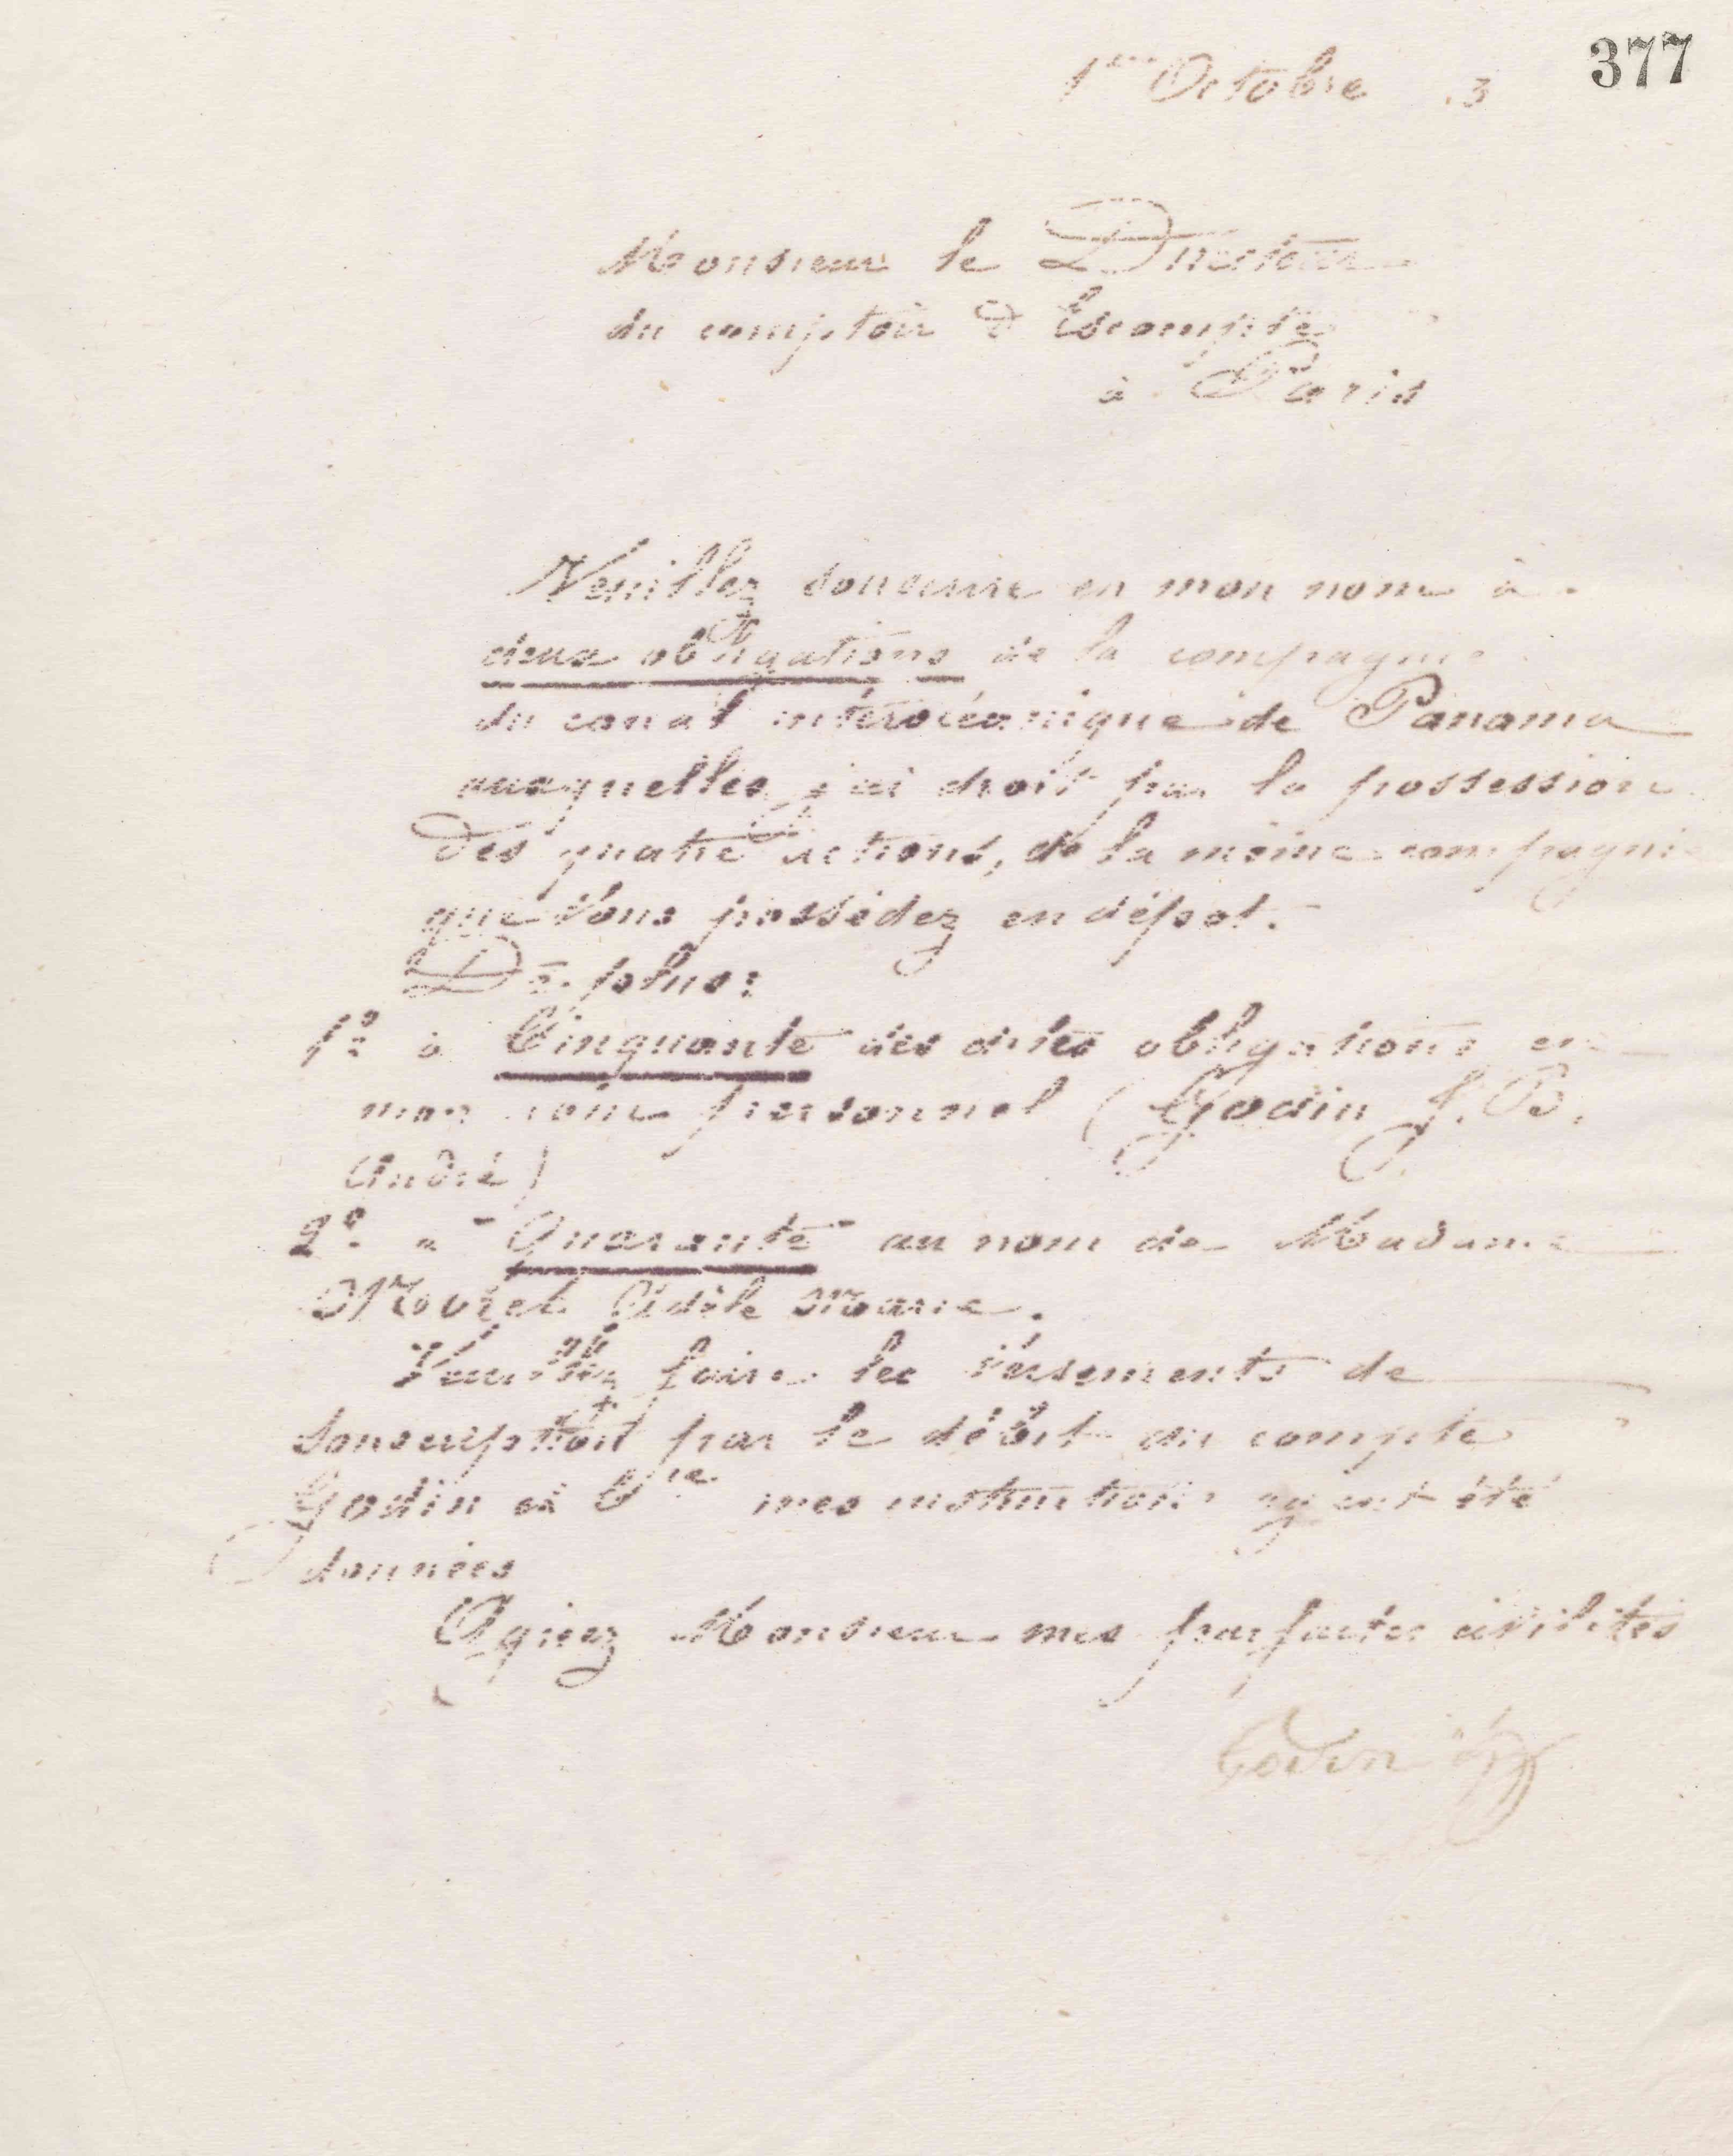 377
1er Octobre 3
Monsieur le Directeur
du comptoir d'Escompte
à Paris
Veuillez souscrire en mon nom à
deux obligations de la compagnie
du canal interocéanique de Panama
auxquelles j'ai droit par la possession
des quatre actions, de la même compagnie
que vous possédez en dépot.
De plus:
1o à Cinquante des dites obligations en
mon nom personnel (Godin J. B.
André)
2o à Quarante au nom de Madame
Moret Adèle Marie.
Veuillez faire les versements de
souscription par le débit du compte
Godin et Cie mes instructions ayant été
données
Agréez Monsieur mes parfaites civilités
Godin